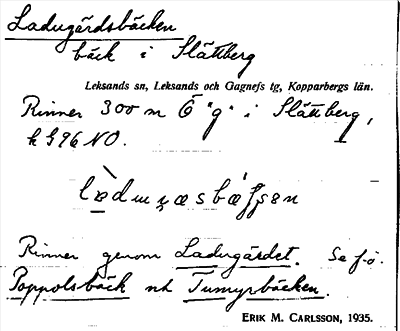 Ladugårdsbäcken
bäck i Slättberg
Leksands sn, Leksands och Gagnefs tg, Kopparbergs län.
Rinner 300 m Ö "g" i Slättberg,
k 596 NO.
Rinner genom Ladugärdet. Se f.ö.
Poppolsbäck och Tumyrbäcken.
ERIK M. CARLSSON, 1935.